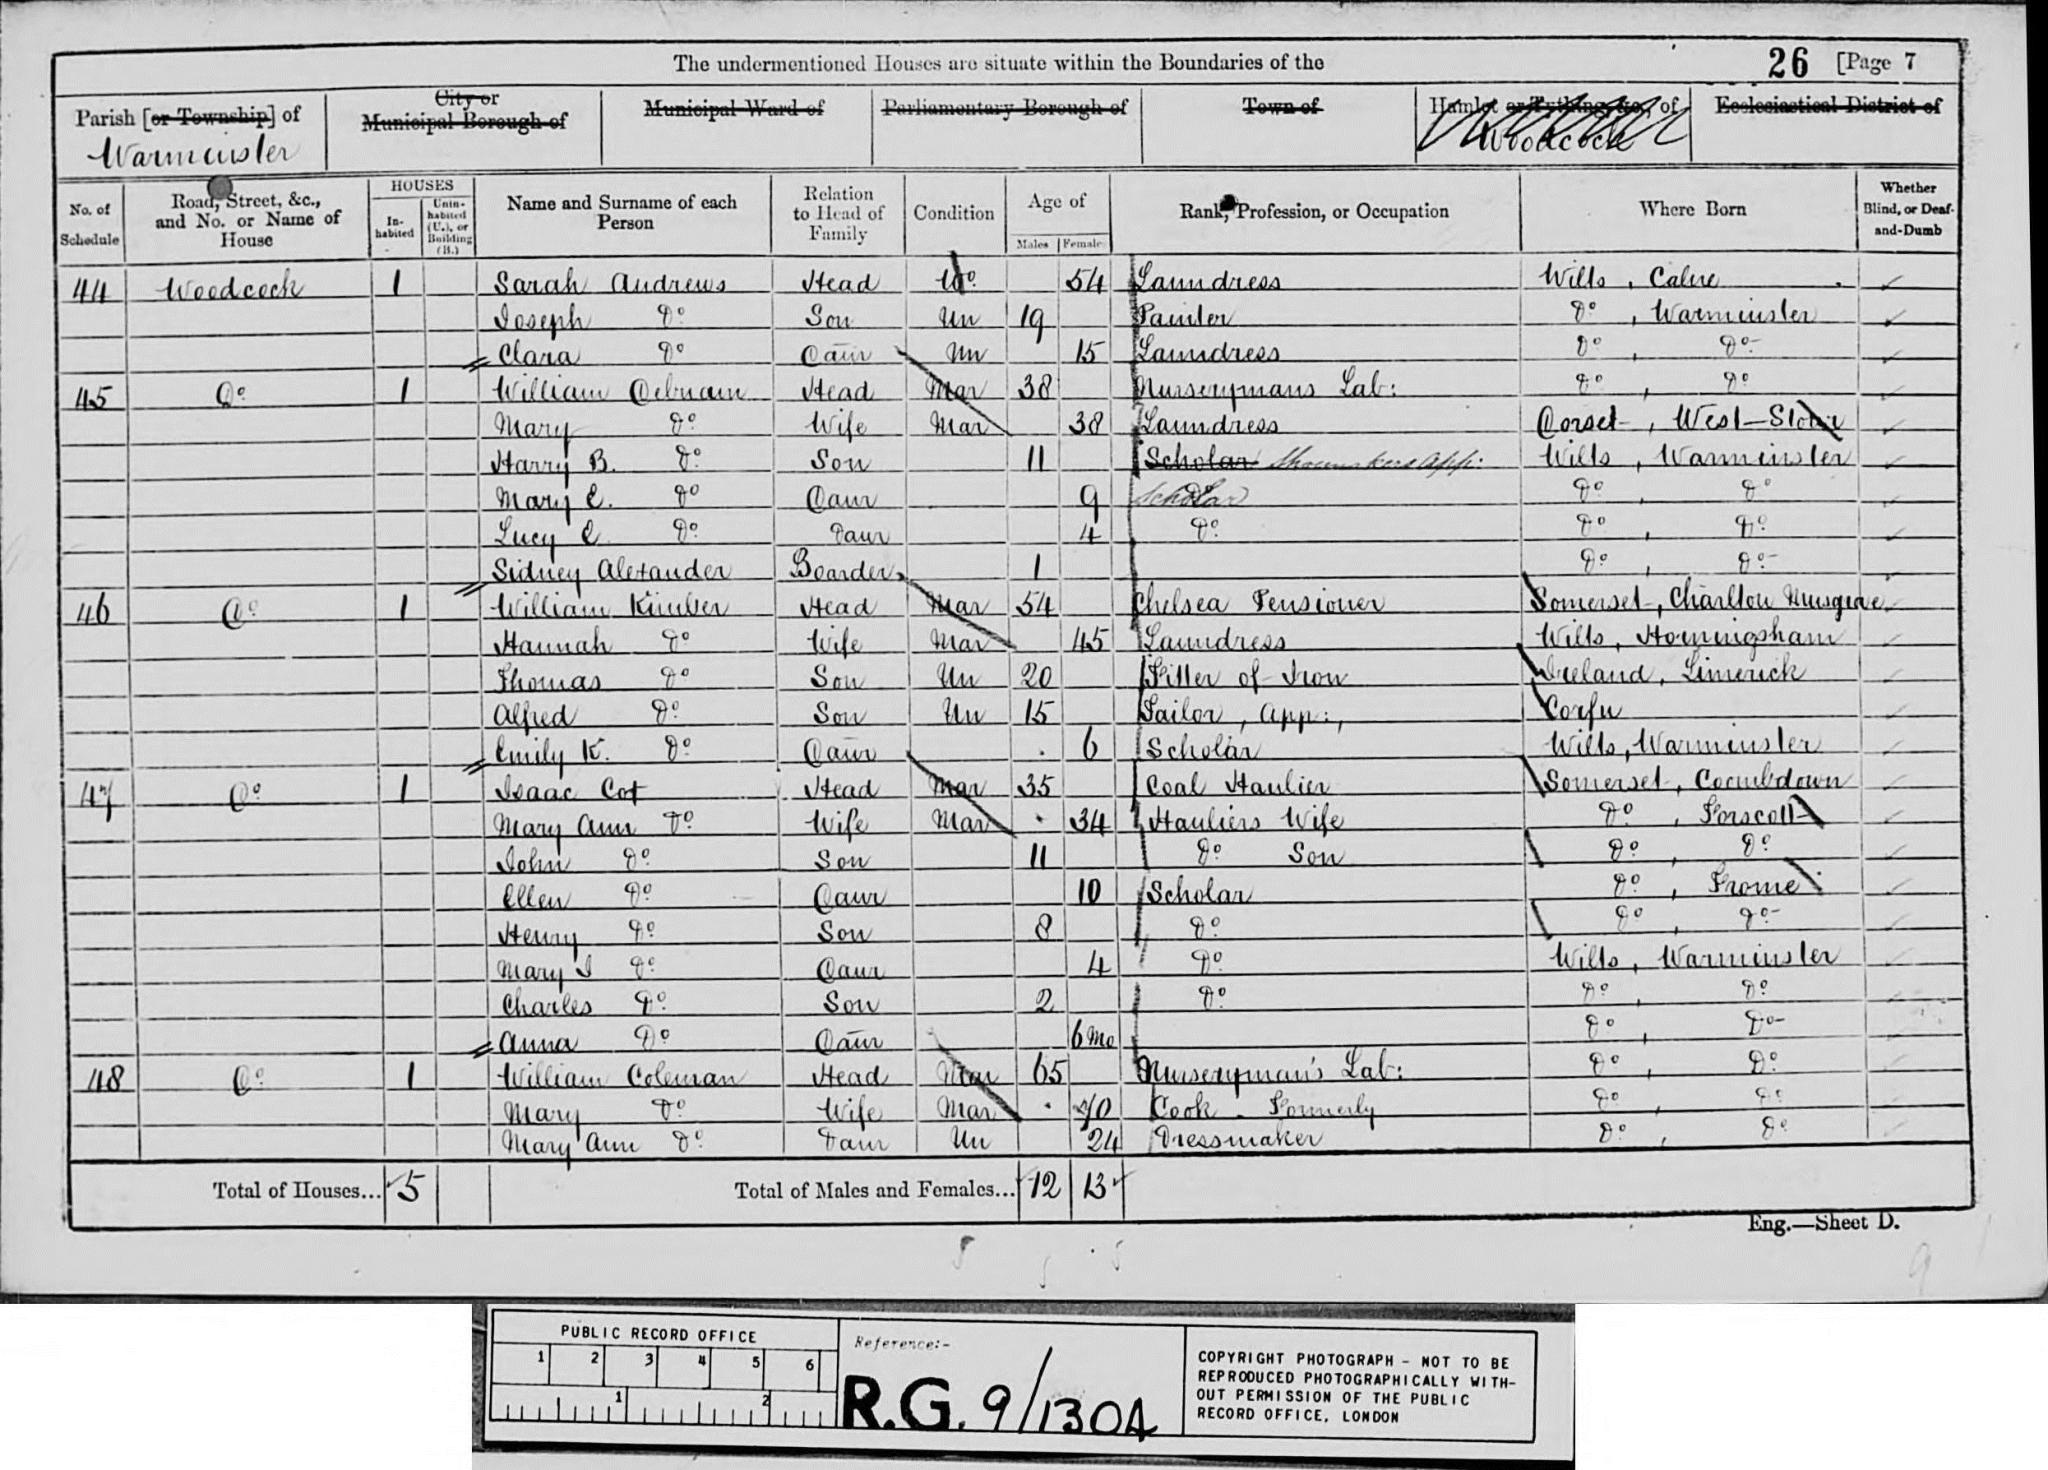 The undermentioned Houses are situate within the Boundaries of the 26 [Page 7
Parish [or Township] of Warminster
City or Municipal Borough of
Municipal Ward of
Parliamentary Borough of
Town of
Hamlet or Tything, &c., of Woodcock
Ecclesiastical District of
No. of Schedule
Road, Street, &c., and No. or Name of House
HOUSES
In-habited
Unin-habited (U.), or Building (B.)
Name and Surname of each Person
Relation to Head of Family
Condition
Age of
Males
Females
Rank, Profession, or Occupation
Where Born
Whether Blind, or Deaf-and-Dumb
44 Woodcock 1 Sarah Andrews Head Wo. 54 Laundress Wilts, Calne
Joseph Do Son Un 19 Painter Do, Warminster
Clara Do Daur Un 15 Laundress Do, Do
45 Do 1 William Head Mar 38 Nurserymans Lab: Do, Do
Mary Do Wife Mar 38 Laundress Dorset, West Stour
Harry B. Do Son 11 Scholar Shoemakers App: Wilts, Warminster
Mary E. Do Daur 9 Do Scholar Do Do
Lucy E. Do Daur 4 Do Do, Do
Sidney Alexander Boarder 1 Do, Do
46 Do 1 William Kimber Head Mar 54 Chelsea Pensioner Somerset, Charlton Musgrove
Hannah Do Wife Mar 45 Laundress Wilts, Horningsham
Thomas Do Son Un 20 Fitter of Iron Ireland, Limerick
Alfred Do Son Un 15 Tailor, App:, Corfu
Emily K. Do Daur 6 Scholar Wilts, Warminster
47 Do 1 Isaac Cox Head Mar 35 Coal Haulier Somerset, Coombdown
Mary Ann Do Wife Mar 34 Hauliers Wife Do, Forscott
John Do Son 11 Do Son Do, Do
Ellen Do Daur 10 Scholar Do, Frome
Henry Do Son 8 Do Do, Do
Mary J Do Daur 4 Do Wilts, Warminster
Charles Do Son 2 Do Do, Do
Anna Do Daur 6 Mo Do, Do
48 Do 1 William Coleman Head Mar 65 Nurseryman's Lab: Do, Do
Mary Do Wife Mar 70 Cook - Formerly Do, Do
Mary Ann Do Daur Un 24 Dressmaker Do, Do
Total of Houses... 5 Total of Males and Females... 12 13
Eng.—Sheet D.
PUBLIC RECORD OFFICE
1 2 3 4 5 6
1 2
Reference:-
R.G. 9/1304
COPYRIGHT PHOTOGRAPH - NOT TO BE
REPRODUCED PHOTOGRAPHICALLY WITH-
OUT PERMISSION OF THE PUBLIC
RECORD OFFICE, LONDON